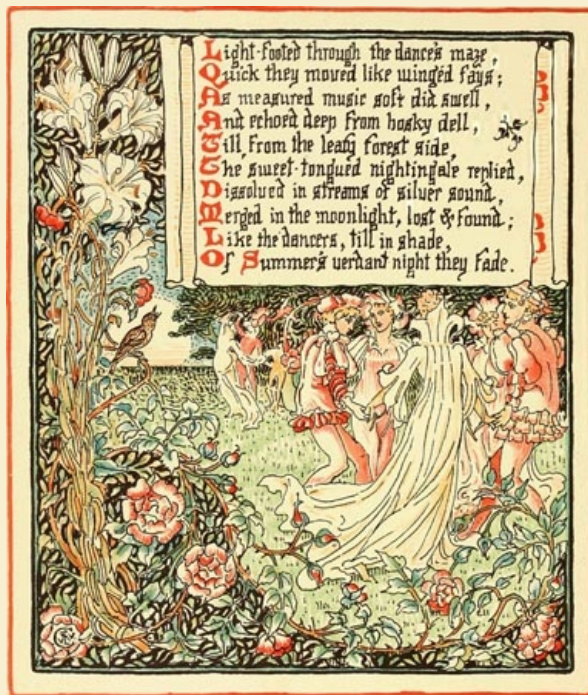 Light-footed through the dance's maze,
Quick they moved like winged fays;
As measured music soft did swell,
And echoed deep from bosky dell,
Till from the leafy forest side,
The sweet-tongued nightingale replied,
Dissolved in streams of silver sound,
Merged in the moonlight, lost & found;
Like the dancers, till in shade,
Of Summer's verdant night they fade.